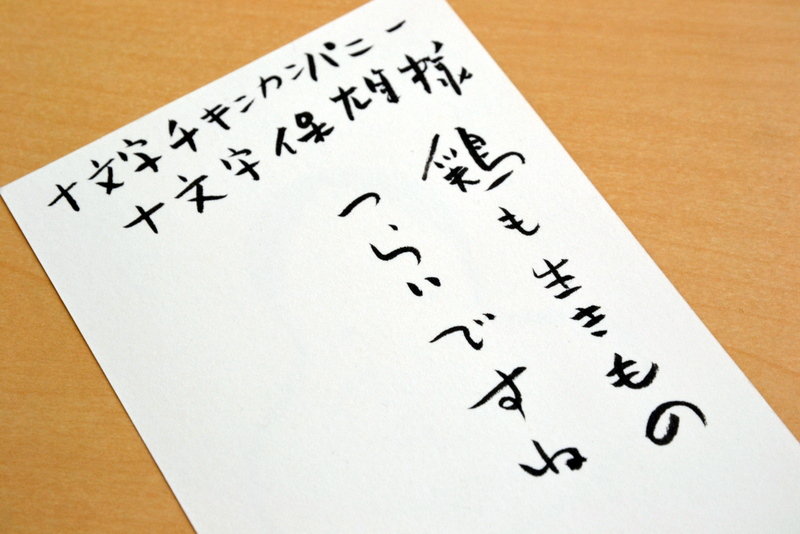 十文字チキンカンパニー
十文字保雄様
鶏も生きもの
つらいですね